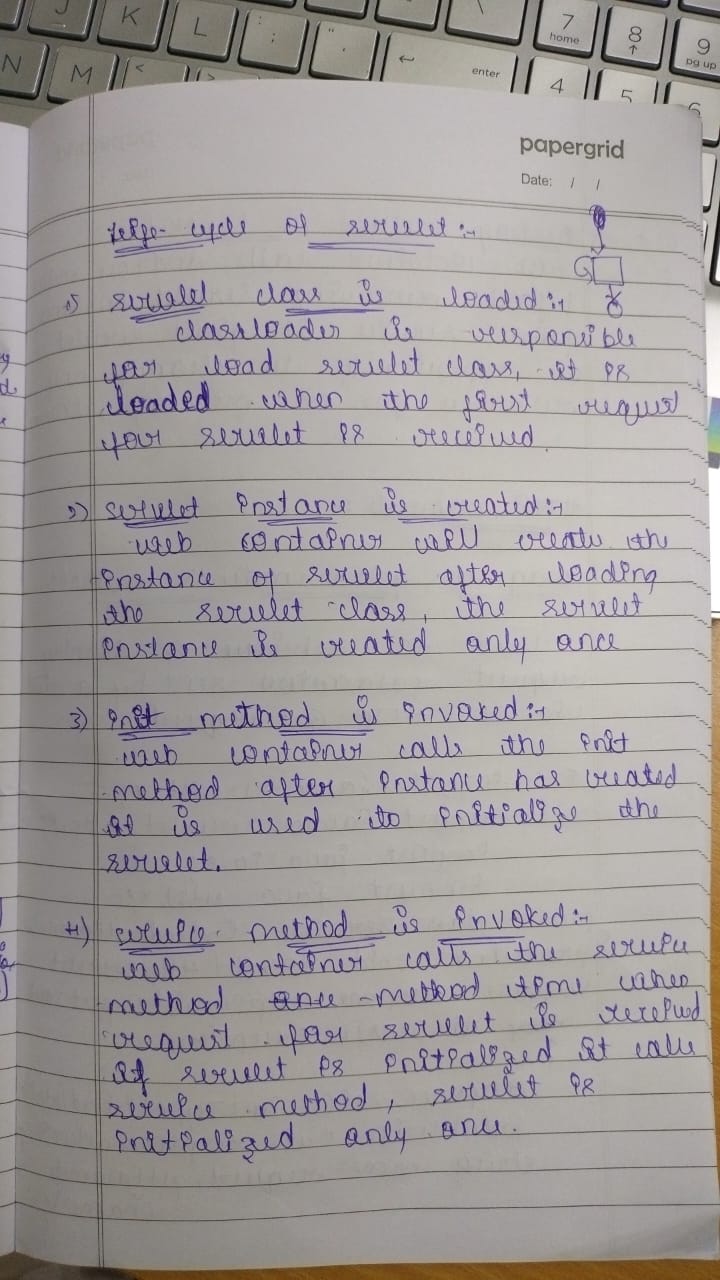 J
K
L
:
;
"
'
7
home
8
↑
9
pg up
N
M
<
>
enter
4
5
6
papergrid
Date: / /
Life-cycle of servlet :-
1) servlet class is loaded :-
classloader is responsible
for load servlet class, it is
loaded when the first request
for servlet is received
2) servlet instance is created :-
web container will create the
instance of servlet after loading
the servlet class, the servlet
instance is created only once
3) init method is invoked :-
web container calls the init
method after instance has created
it is used to initialize the
servlet.
4) service method is invoked :-
web container calls the service
method time when
request for servlet is received
if servlet is initialized it calls
service method, servlet is
initialized only once.